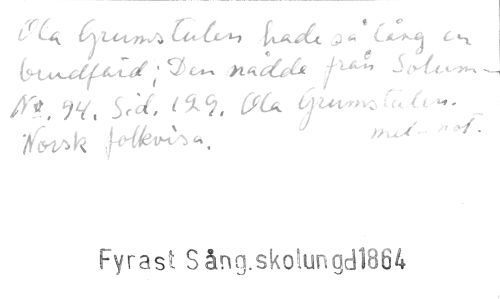 Ola Grumstulen hade så lång en
brudfärd; Den nådde från Solum-
Nr. 94. Sid. 129. Ola Grumstulen.
Norsk folkvisa. med not.
Fyrast Sång.skolungd1864